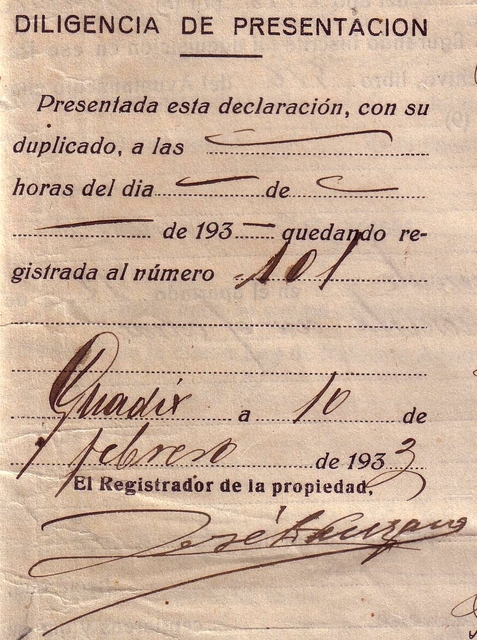 DILIGENCIA DE PRESENTACION
Presentada esta declaración, con su
duplicado, a las
horas del día de
de 193 quedando re-
gistrada al número 101
Guadix a 10 de
febrero de 1933
El Registrador de la propiedad,
José